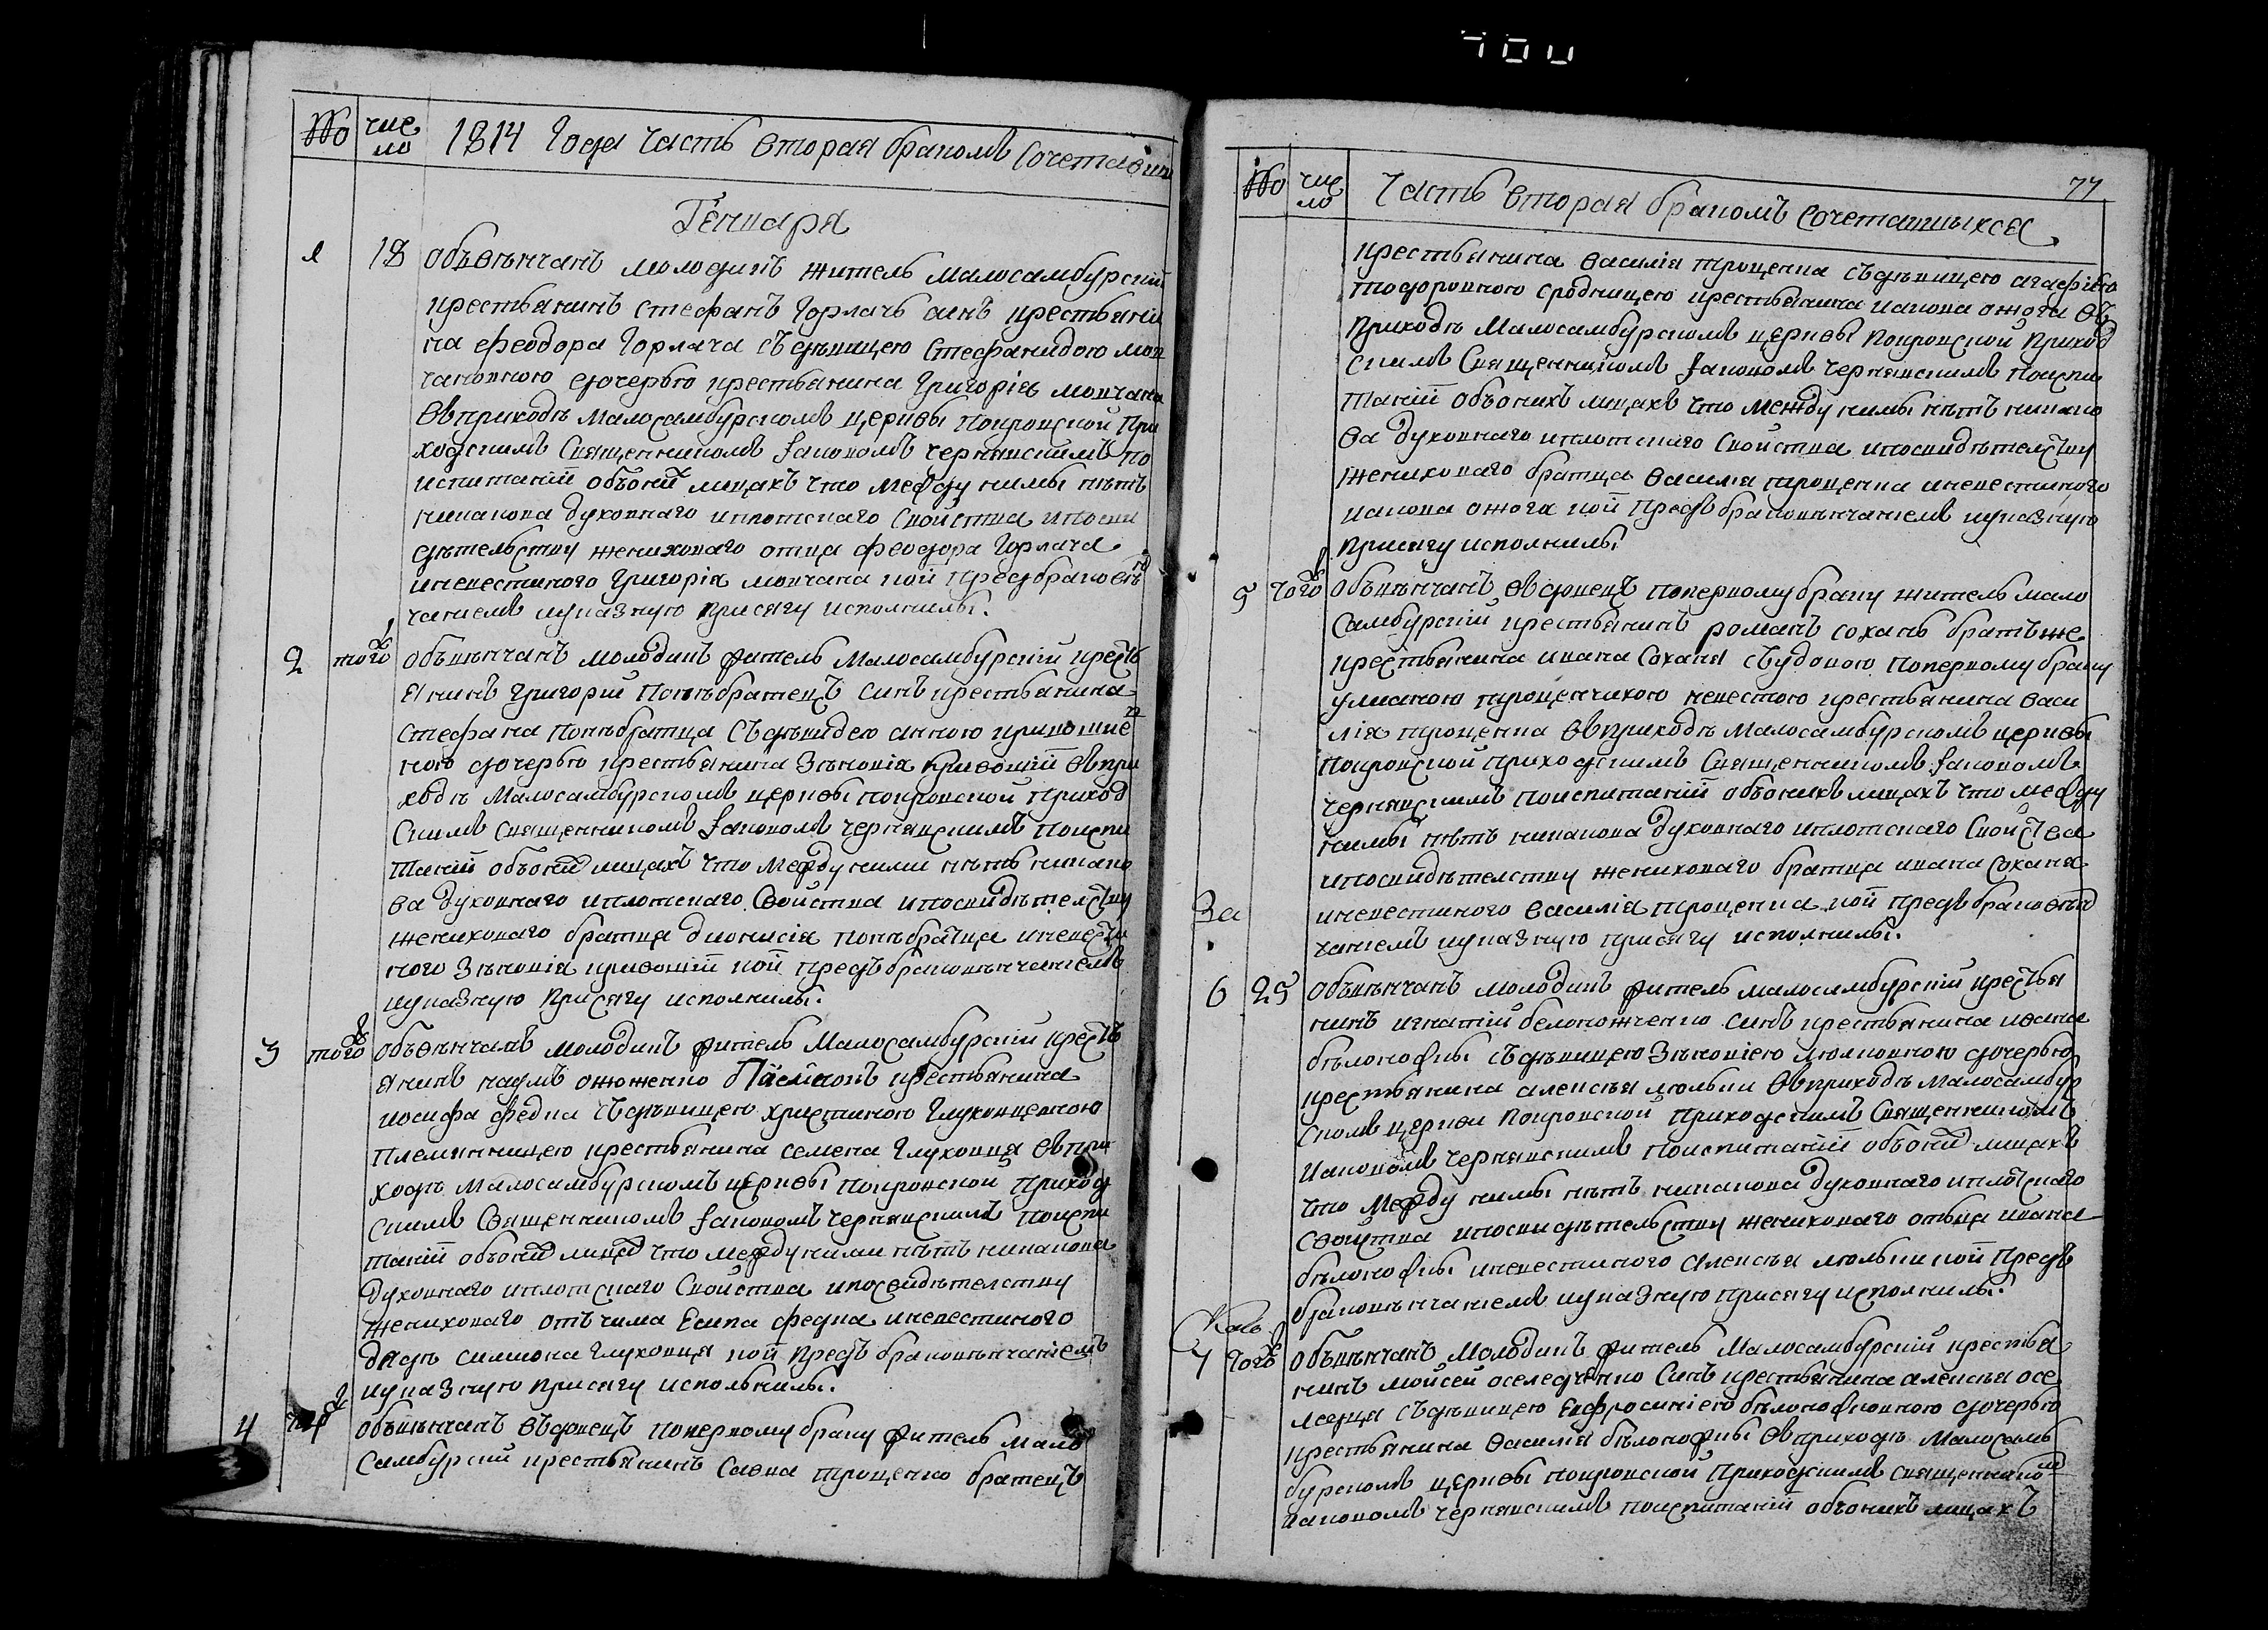 № чис
ло
1814 Года Часть вторая бракомъ Сочетавши
Генваря
1 18 Объвѣнчанъ молодикъ житель малосамбурскій
крестьянинъ Стефанъ Горлачь синъ крестьяни
на феодора Горлача съ дѣвицею Стефанидою мов
чановною дочерью крестьянина Григорія мовчана
Въ приходѣ Малосамбурскомъ церквы покровской при
ходскимъ Священникомъ Іаковомъ Чернявскимъ по
испитаніи объ оних лицахъ что между нимы нѣтъ
никакова духовнаго иплотскаго Свойства ипосви
дѣтельству жениховаго отца феодора Горлача
иневестиного Григорія мовчана кои предъ браковѣн
чаніемъ указную присягу исполнилы.
2 тогож Объвѣнчанъ молодикъ житель Малосамбурскій кресть
янинъ Григорій Попѣбратецъ синъ крестьянина
Стефана попѣбратца съ дѣвицею анною кривошие
ною дочерью крестьянина Зѣновія кривошіи въ при
ходѣ Малосамбурскомъ церквы покровской приход
скимъ священникомъ Іаковомъ Чернявскимъ поиспи
таніи объ оних лицахъ что между ними нѣтъ никако
ва духовнаго иплотскаго Свойства ипосвидѣтелству
жениховаго братца дионисія попѣбратца иневести
ного Зѣновія кривошіи кои предъ браковѣнчаніемъ
указную присягу исполнилы.
3 тогож Объвѣнчанъ молодикъ житель Малосамбурскій кресть
янинъ наумъ ожоженко Пасинокъ крестьянина
иосифа федка съ дѣвицею христиною Глуховцевною
племянницею крестьянина семена Глуховця въ при
ходѣ малосамбурскомъ церквы покровской приход
скимъ Священникомъ Іаковомъ Чернявскимъ поиспи
таніи объ оних лицах что между ними нѣтъ никакова
духовнаго иплотскаго Свойства ипосвидѣтелству
жениховаго отъчима Есипа федка иневестиного
дядѣ симиона Глуховця кои предъ браковѣнчаніемъ
указную присягу исполнилы.
4 Объвѣнчанъ вдовецъ поперному браку житель мало
Самбурскій крестьянинъ Савка троценко братецъ
77
№ чис
ло
Часть вторая бракомъ Сочетавшыхся
крестьянина василія троценка съ дѣвицею агафіею
тодоровною сродницею крестьянина иакова ожога въ
Приходѣ Малосамбурскомъ церквы покровской приход
скимъ Священникомъ Іаковомъ Чернявскимъ поиспи
таніи объ онихъ лицахъ что между нимы нѣтъ никако
ва духовнаго иплотскаго Свойства ипосвидѣтелству
жениховаго братца василія троценка иневестиного
иакова ожога кои предъ браковѣнчаніемъ указную
присягу исполнилы
5 тогож Объвѣнчанъ вдовецъ поперному браку житель мало
Самбурскій крестьянинъ романъ сохань братъ же
крестьянина ивана Соханя съ удовою поперному браку
улианою троценчихою невестою крестьянина васи
лія троценка въ приходѣ малосамбурскомъ церквы
покровской приходскимъ Священникомъ Іаковомъ
Чернявскимъ поиспитаніи объ онихъ лицахъ что между
нимы нѣтъ никакова духовнаго иплотскаго Свойства
ипосвидѣтелству жениховаго братца ивана Соханя
иневестиного василія троценка кои предъ браковѣн
чаніемъ указную присягу исполнилы.
За
6 25 Объвѣнчанъ молодикъ житель малосамбурскій крестья
нинъ игнатій белоноженко синъ крестьянина ивана
бѣлоножкы съ дѣвицею Зѣновіею люлковною дочерью
крестьянина алексѣя люльки въ приходѣ малосамбур
скомъ церкви покровской приходскимъ Священникомъ
Иаковомъ Чернявскимъ поиспитаніи объ оних лицахъ
что между нимы нѣтъ никакова духовнаго иплотскаго
свойства ипосвидѣтельству жениховаго отьца ивана
бѣлоножкы иневестиного алексѣя люльки кои предъ
браковѣнчаніемъ указную присягу исполнилы.
7 тогож Объвѣнчанъ молодикъ житель Малосамбурскій крестья
нинъ мойсей оселедченко Синъ крестьянина алексѣя осе
ледця съ дѣвицею Евфросиніею бѣлоножковною дочерью
крестьянина василія бѣлоножкы въ приходѣ Малосам
бурскомъ церквы покровской приходскимъ священником
иаковомъ Чернявскимъ поиспитаніи объ онихъ лицахъ